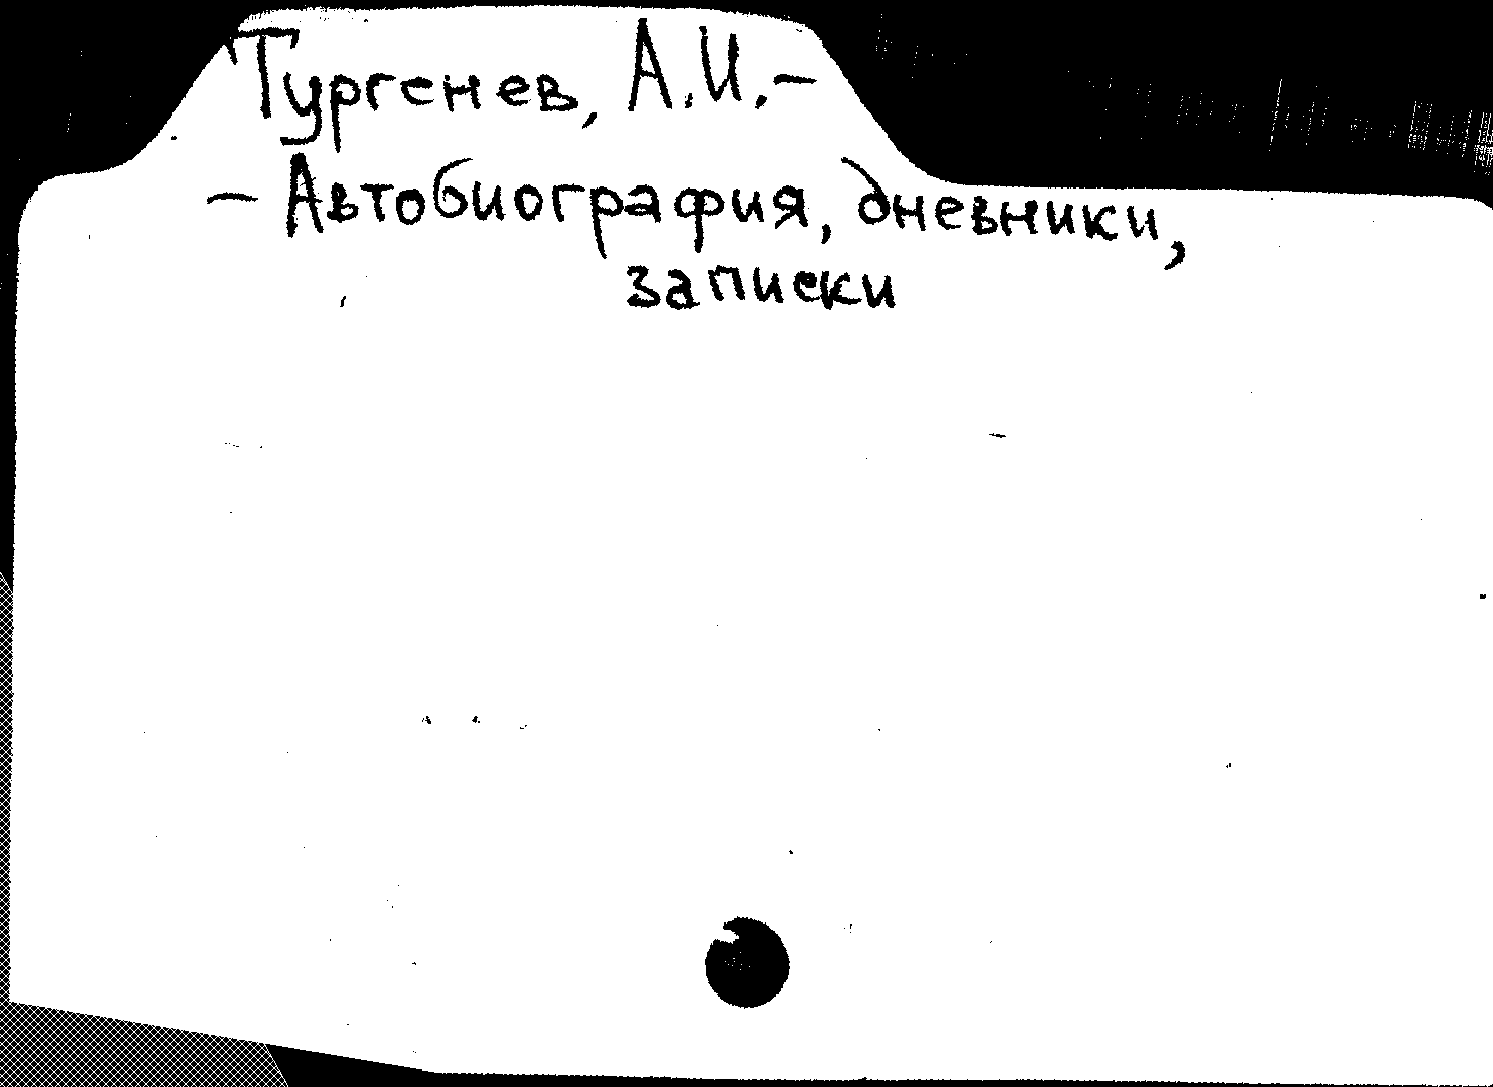 Тургенев, А.И.–
– Автобиография, дневники,
записки